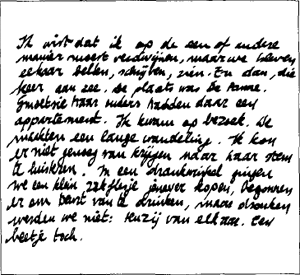 Ik wist dat ik op de een of andere
manier moest verdwijnen, maar we bleven
elkaar bellen, schrijven, zien. En dan, die
keer aan zee. De plaats was De Panne.
haar ouders hadden daar een
appartement. Ik kwam op bezoek. We
maakten een lange wandeling. Ik kon
er niet genoeg van krijgen naar haar stem
te luisteren. In een drankwinkel gingen
we een klein zakflesje jenever kopen, begonnen
er om beurt van te drinken, maar dronken
werden we niet: tenzij van elkaar. Een
beetje toch.